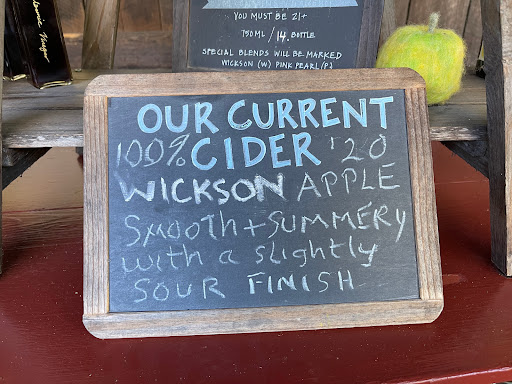 YOU MUST BE 21+
750ML / 14. BOTTLE
SPECIAL BLENDS WILL BE MARKED
WICKSON (W) PINK PEARL (PJ
OUR CURRENT
100% CIDER '20
WICKSON APPLE
SMOOTH + SUMMERY
with a slightly
SOUR FINISH